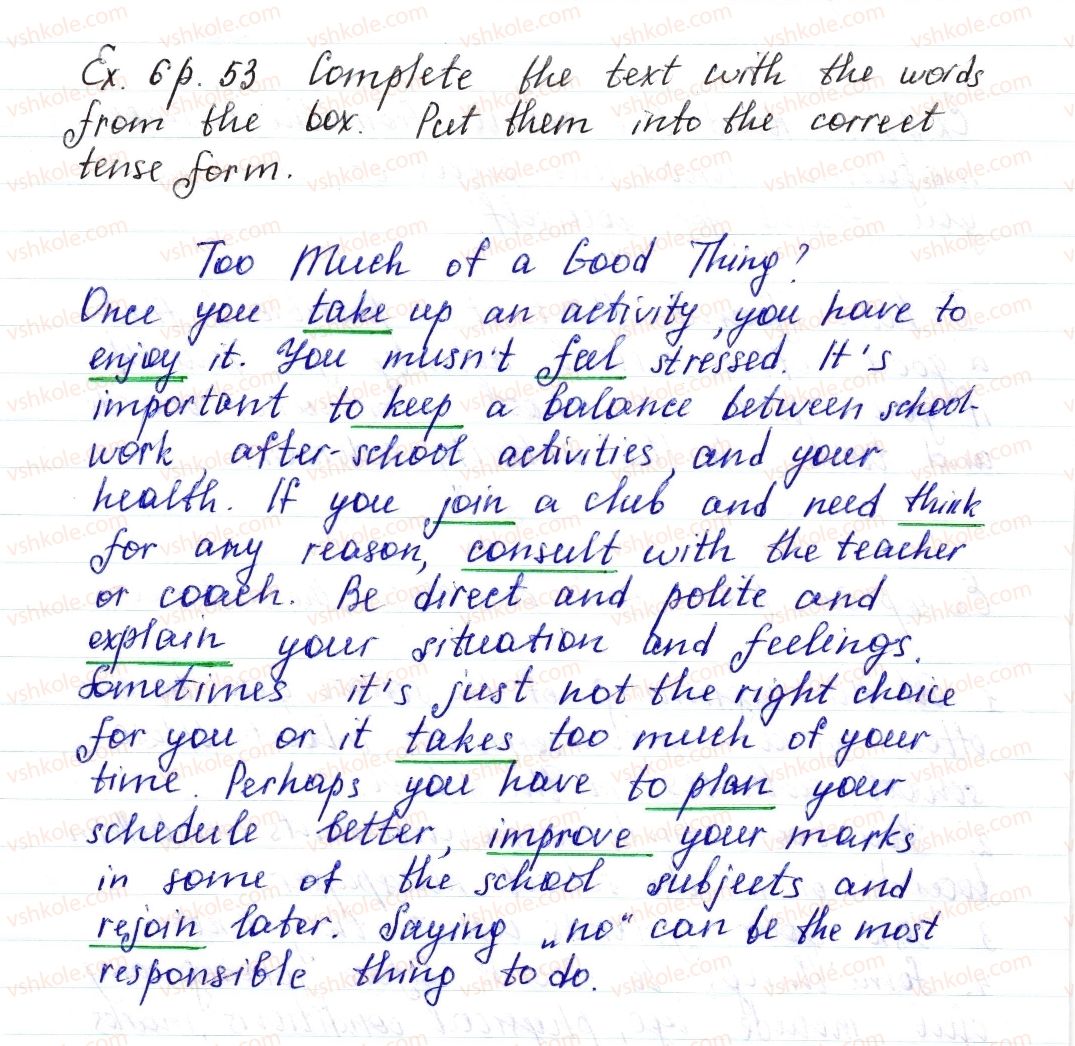 Ex. 6 p. 53 Complete the text with the words
from the box. Put them into the correct
tense form.
Too Much of a Good Thing?
Once you take up an activity, you have to
enjoy it. You musn't feel stressed. It's
important to keep a balance between school-
work, after-school activities, and your
health. If you join a club and need think
for any reason, consult with the teacher
or coach. Be direct and polite and
explain your situation and feelings.
Sometimes it's just not the right choice
for you or it takes too much of your
time. Perhaps you have to plan your
schedule better, improve your marks
in some of the school subjects and
rejoin later. Saying „no“ can be the most
responsible thing to do.